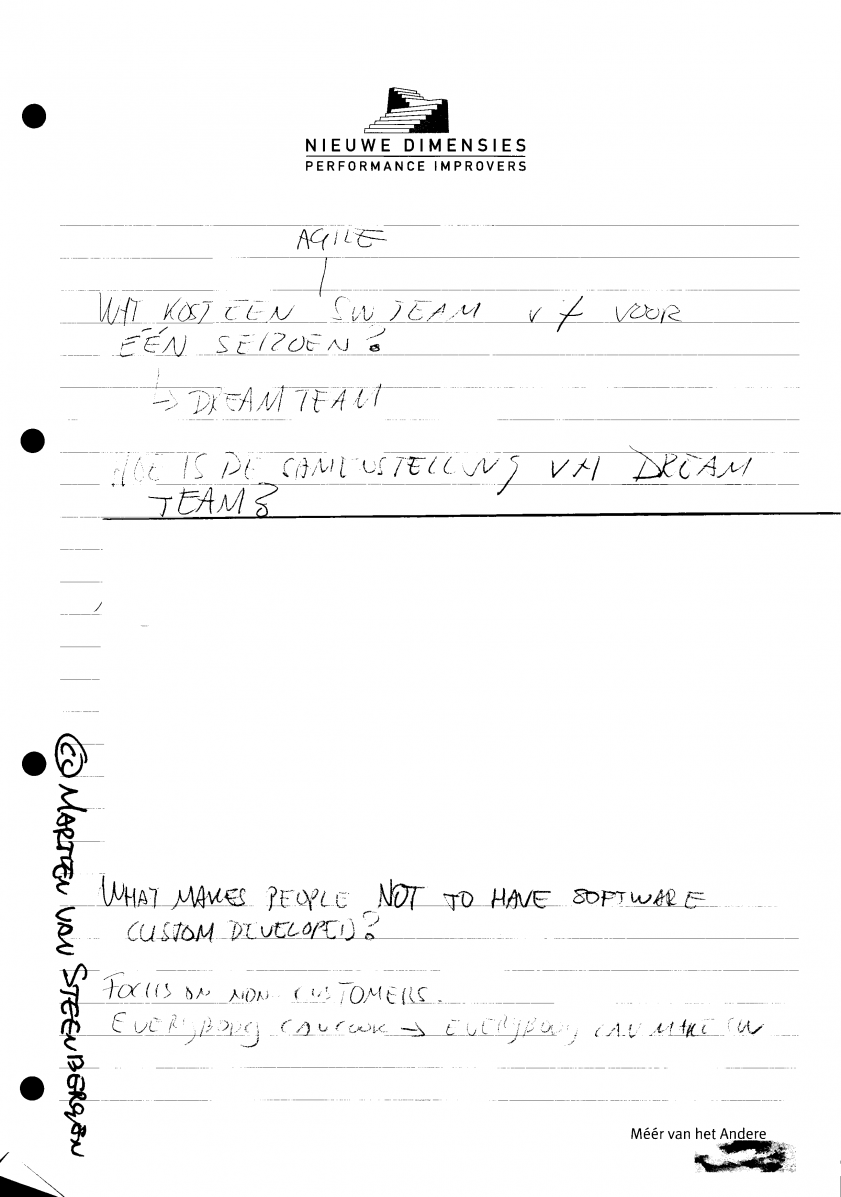 NIEUWE DIMENSIES
PERFORMANCE IMPROVERS
AGILE
WAT KOST EEN SW TEAM v 7 VOOR
ÉÉN SEIZOEN?
↳ DREAMTEAM
HOE IS DE SAMENSTELLING VH DREAM
TEAM?
© MARTIEN VAN STEENBERGEN
WHAT MAKES PEOPLE NOT TO HAVE SOFTWARE
CUSTOM DEVELOPED?
FOCUS ON NON CUSTOMERS.
EVERYBODY CAN COOK → EVERYBODY CAN MAKE SW
Méér van het Andere